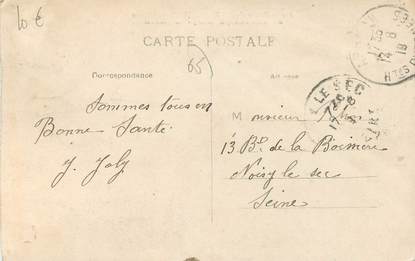 10 €
CARTE POSTALE
65
Correspondance
Adresse
Sommes tous en
Bonne Santé
J. Joly
Monsieur
13 Bd. de la Boissière
Noisy le sec
Seine
LE SEC